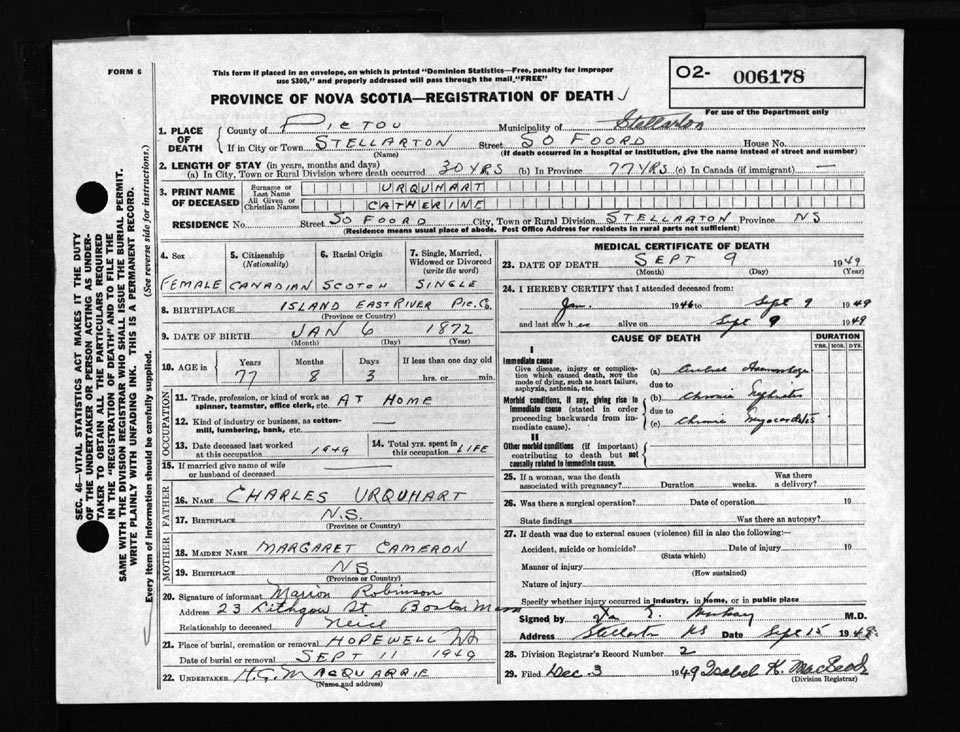 FORM 6
This form if placed in an envelope, on which is printed "Dominion Statistics—Free, penalty for improper
use $300," and properly addressed will pass through the mail "FREE"
O2- 006178
PROVINCE OF NOVA SCOTIA—REGISTRATION OF DEATH
For use of the Department only
1. PLACE OF DEATH
County of PICTOU Municipality of Stellarton
If in City or Town STELLARTON Street SO FOORD House No.
(Name) (If death occurred in a hospital or institution, give the name instead of street and number)
2. LENGTH OF STAY (in years, months and days)
(a) In City, Town or Rural Division where death occurred 30 YRS (b) In Province 77 YRS (c) In Canada (if immigrant) —
3. PRINT NAME OF DECEASED
Surname or Last Name URQUHART
All Given or Christian Names CATHERINE
RESIDENCE No. Street SO FOORD City, Town or Rural Division STELLARTON Province NS
(Residence means usual place of abode. Post Office Address for residents in rural parts not sufficient)
4. Sex
FEMALE
5. Citizenship
(Nationality)
CANADIAN
6. Racial Origin
SCOTCH
7. Single, Married,
Widowed or Divorced
(write the word)
SINGLE
8. BIRTHPLACE ISLAND EAST RIVER PIC. Co.
(Province or Country)
9. DATE OF BIRTH JAN 6 1872
(Month) (Day) (Year)
10. AGE in
Years Months Days If less than one day old
77 8 3 hrs. or min.
OCCUPATION
11. Trade, profession, or kind of work as
spinner, teamster, office clerk, etc. AT HOME
12. Kind of industry or business, as cotton-
mill, lumbering, bank, etc. —
13. Date deceased last worked
at this occupation 1949
14. Total yrs. spent in
this occupation LIFE
15. If married give name of wife
or husband of deceased —
FATHER
16. NAME CHARLES URQUHART
17. BIRTHPLACE N.S.
(Province or Country)
MOTHER
18. MAIDEN NAME MARGARET CAMERON
19. BIRTHPLACE NS.
(Province or Country)
20. Signature of informant Marion Robinson
Address 23 Lithgow St. Boston Mass
Relationship to deceased Neice
21. Place of burial, cremation or removal HOPEWELL NS
Date of burial or removal SEPT 11 1949
22. UNDERTAKER H.G. MACQUARRIE
(Name and address)
MEDICAL CERTIFICATE OF DEATH
23. DATE OF DEATH SEPT 9 1949
(Month) (Day) (Year)
24. I HEREBY CERTIFY that I attended deceased from:
Jan. 1946 to Sept 9 1949
and last saw her alive on Sept 9 1949
CAUSE OF DEATH
DURATION
YRS. MOS. DYS.
I
Immediate cause
Give disease, injury or complica-
tion which caused death, NOT the
mode of dying, such as heart failure,
asphyxia, asthenia, etc.
(a) Cerebral Haemorrhage
due to
Morbid conditions, if any, giving rise to
immediate cause (stated in order
proceeding backwards from im-
mediate cause).
(b) Chronic Nephritis
due to
(c) Chronic Myocarditis
II
Other morbid conditions (if important)
contributing to death but not
causally related to immediate cause.
25. If a woman, was the death
associated with pregnancy? Duration weeks. Was there
a delivery?
26. Was there a surgical operation? Date of operation 19
State findings Was there an autopsy?
27. If death was due to external causes (violence) fill in also the following:
Accident, suicide or homicide? Date of injury 19
(State which)
Manner of injury
(How sustained)
Nature of injury
Specify whether injury occurred in industry, in home, or in public place
Signed by E. M.D.
Address Stellarton NS Date Sept 15 1949
28. Division Registrar's Record Number 2
29. Filed Dec. 3 1949 Isabel K. MacLeod
(Division Registrar)
SEC. 46—VITAL STATISTICS ACT MAKES IT THE DUTY
OF THE UNDERTAKER OR PERSON ACTING AS UNDER-
TAKER TO OBTAIN ALL THE PARTICULARS REQUIRED
IN THE "REGISTRATION OF DEATH" AND TO FILE THE
SAME WITH THE DIVISION REGISTRAR WHO SHALL ISSUE THE BURIAL PERMIT.
WRITE PLAINLY WITH UNFADING INK. THIS IS A PERMANENT RECORD.
Every item of information should be carefully supplied. (See reverse side for instructions.)